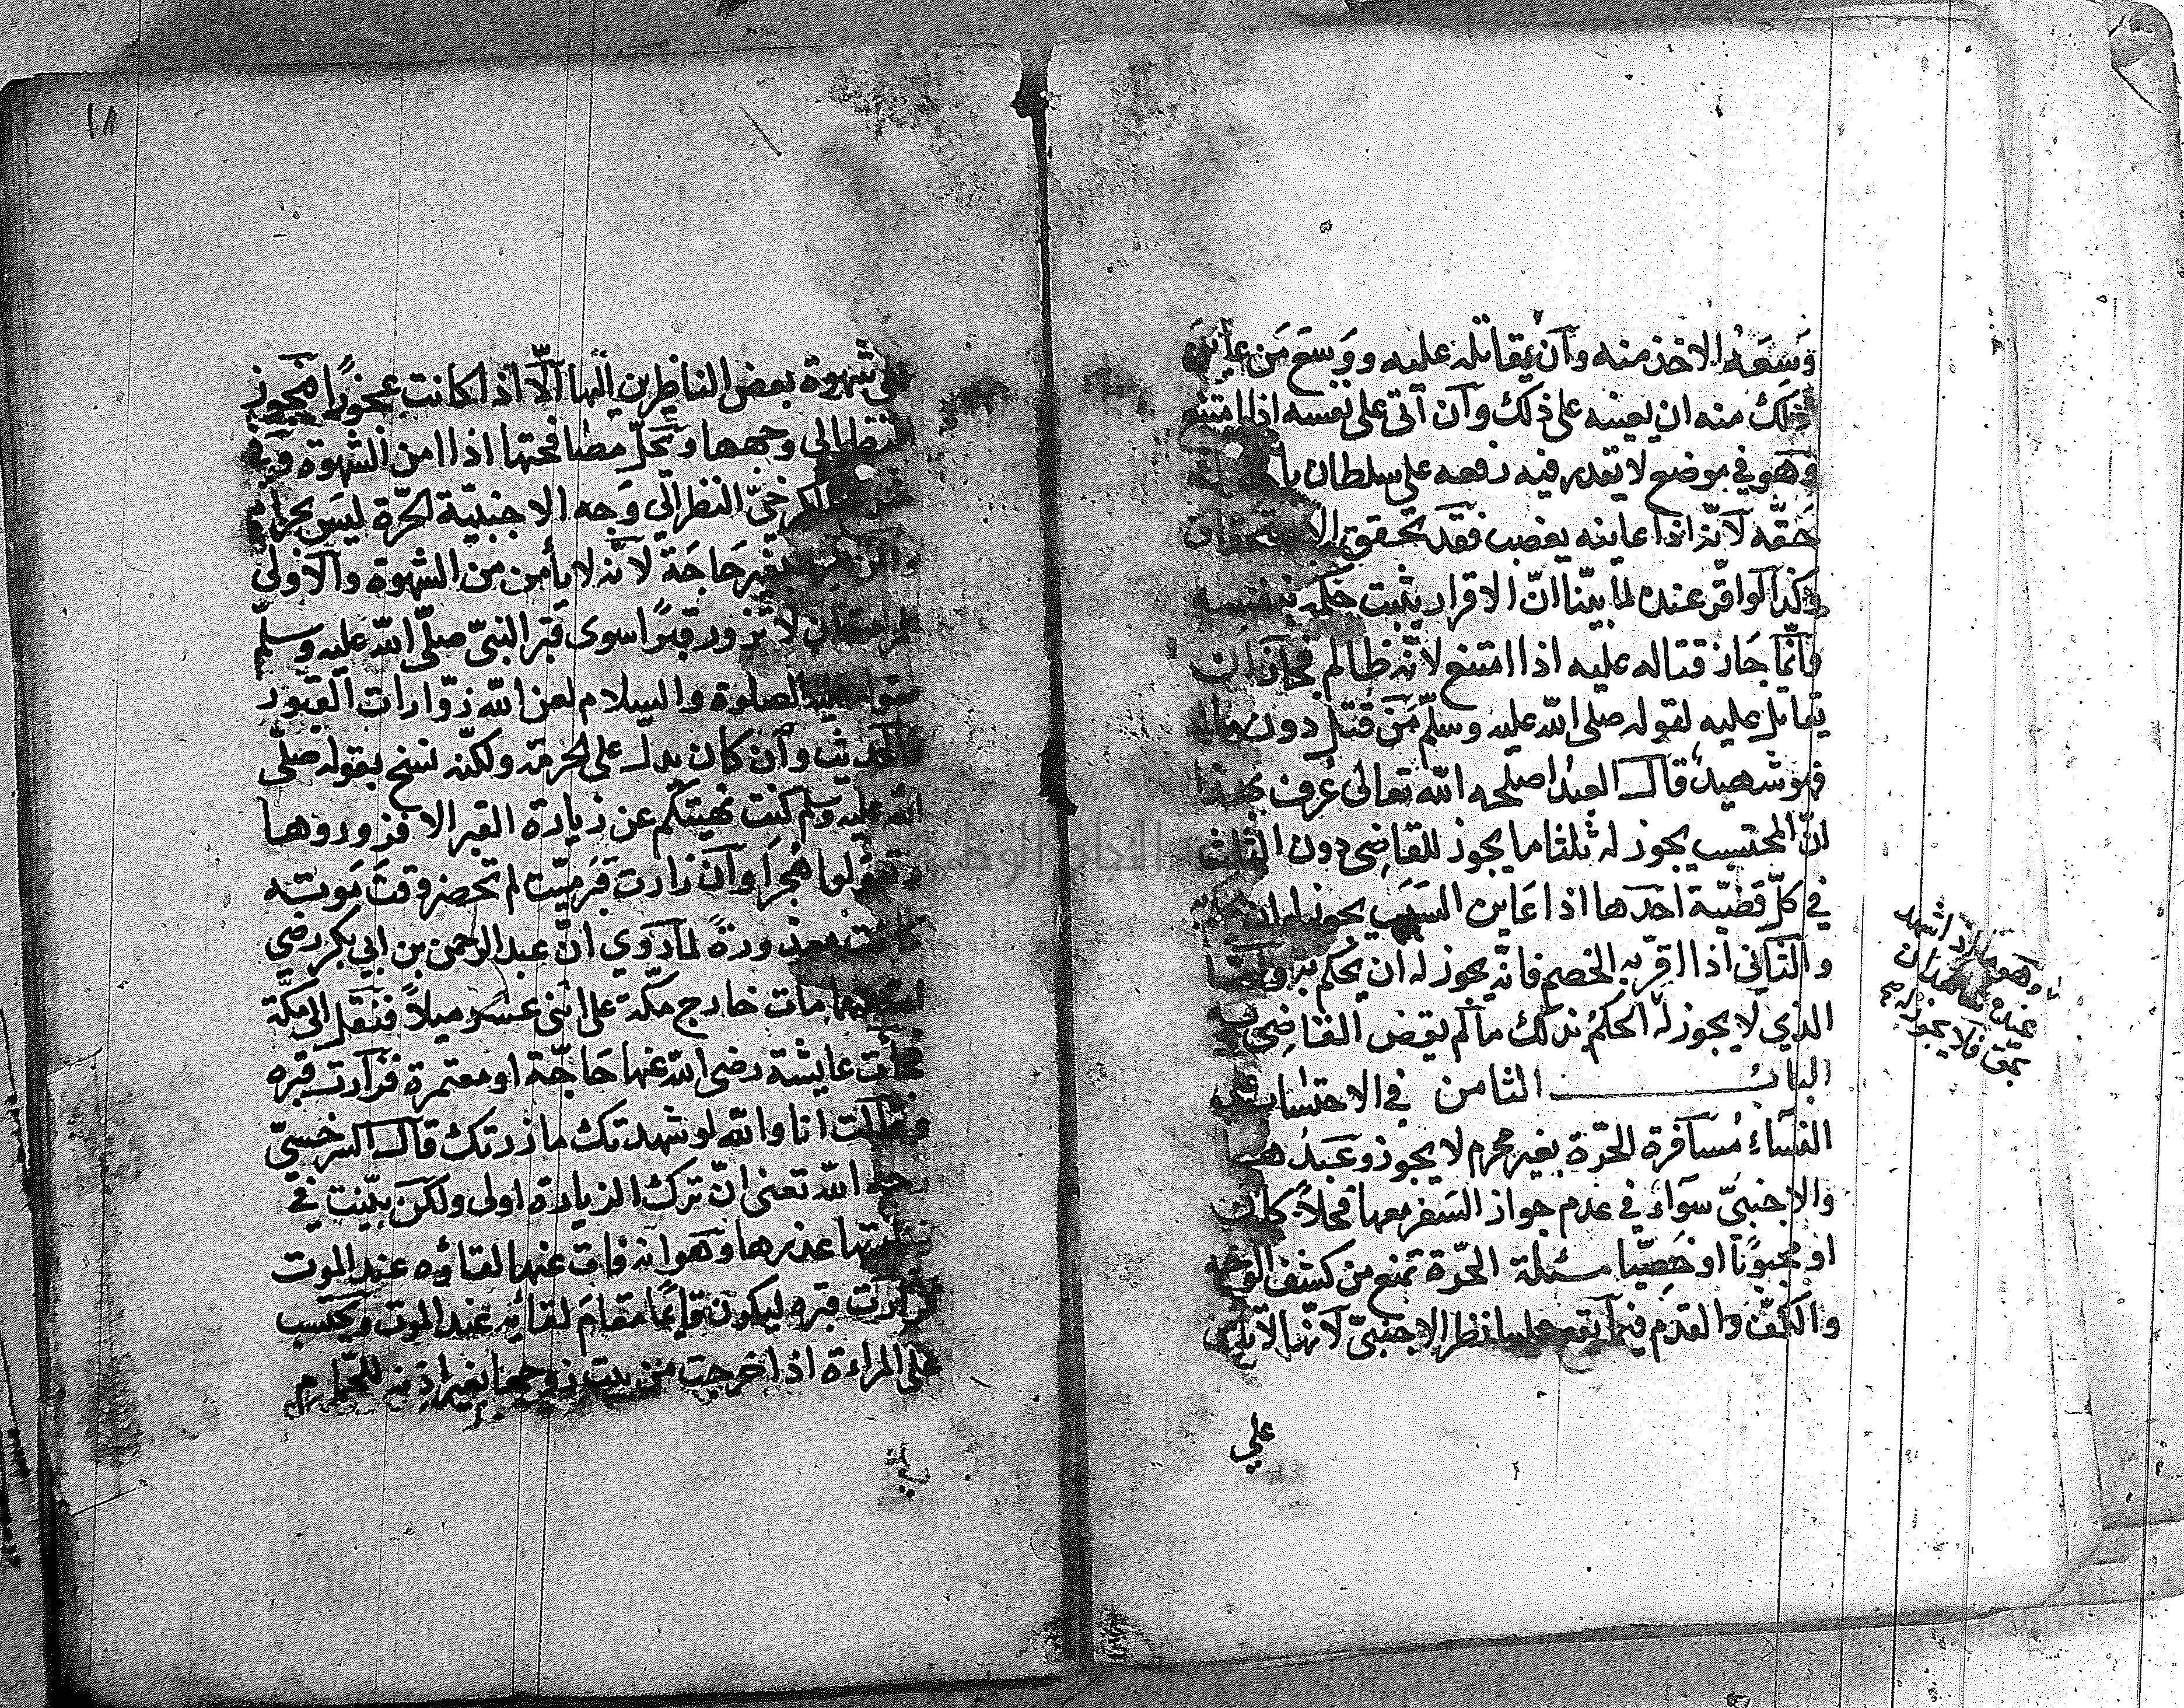 وَسِعَهُ الاخذ منه وان يقاتله عليه ووسع مَن عاين
ذلك منه ان يعينه على ذلك وان اتى على نفسه اذا امتنع
وهو في موضع لا يقدر فيه رفعه على سلطان
حقّه لانّه اذا عاينه يغصب فقد تحقق
وكذا لو اقرّ عنده لما بيّنا انّ الاقرار يثبت حكمه بنفسه
وانّما جَاز قتاله عليه اذا امتنع لانّه ظالم فجاز ان
يقاتل عليه لقوله صلى الله عليه وسلّم مَن قُتل دون ماله
فهو شهيد قال العبد اصلحه الله تعالى عُرف بهذا
انّ المحتسب يجوز له ثلثا ما يجوز للقاضِى دون الثلث
في كلّ قضيّة احدها اذا عَاين السبَب يجوز له ان
والثاني اذا اقرّ به الخصم فانّه يجوز له ان يحكم به
الذي لا يجوز له الحكمُ بذلك ما لم يفوض القاضِى
الباب الثامن في الاحتساب على
النسَآءِ مُسافرة الحرّة بغير محرم لا يجوز وعَبدُها
والاجنبيّ سَوآء في عدم جواز السَفر معها فحلاً كان
او مجبوبًا او خَصِيّا مسئلة الحرّة تمنع من كشف الوجه
والكفّ والقدم فيما يقع عليها نظر الاجنبيّ لانّها لا تأمن
وهو ما اذا شهد
عنده شاهدان
بحق فلا يجوز له
على
١٨
شهوة بعض الناظرين اليها الّا اذا كانت عجوزًا فيجوز
النظر الى وجهها ويحلّ مصافحتها اذا امن الشهوة وفي
الكرخيّ النظر الى وَجه الاجنبيّة الحرّة ليسَ بحرام
بغير حَاجَة لانّه لا يأمن من الشهوة والاولى
لا تزور قبرًا سوى قبر النبيّ صلّى الله عليه وسلّم
الصلوة والسلام لعن الله زوّارات القبور
والحديث وان كان يدل على الحرمة ولكنّه نسخ بقوله صلّى
الله عليه وسلم كنت نهيتكم عن زيارة القبر الا فزوروها
ولا تقولوا هُجرًا وان زارت قبر ميّت لم تحضر وقت مَوته
كانت معذورةً لما روي انّ عبد الرحمن بن ابي بكر رضى
الله عنهما مات خارج مكّة على اثنى عشر ميلاً فنقل الى مكّة
فجاءت عايشة رضى الله عنها حَاجّة او معتمرة فزارت قبره
وقالت انا والله لو شهدتك ما زرتك قال السرخسيّ
رحمه الله تعنى انّ ترك الزيارة اولى ولكن بيّنت في
عذرها وهو انّه فات عنها لقاؤه عند الموت
فزارت قبره ليكون قايمًا مقامَ لقائه عند الموت ويحتسب
على المراءة اذا خرجت من بيت زوجها بغير اذنه